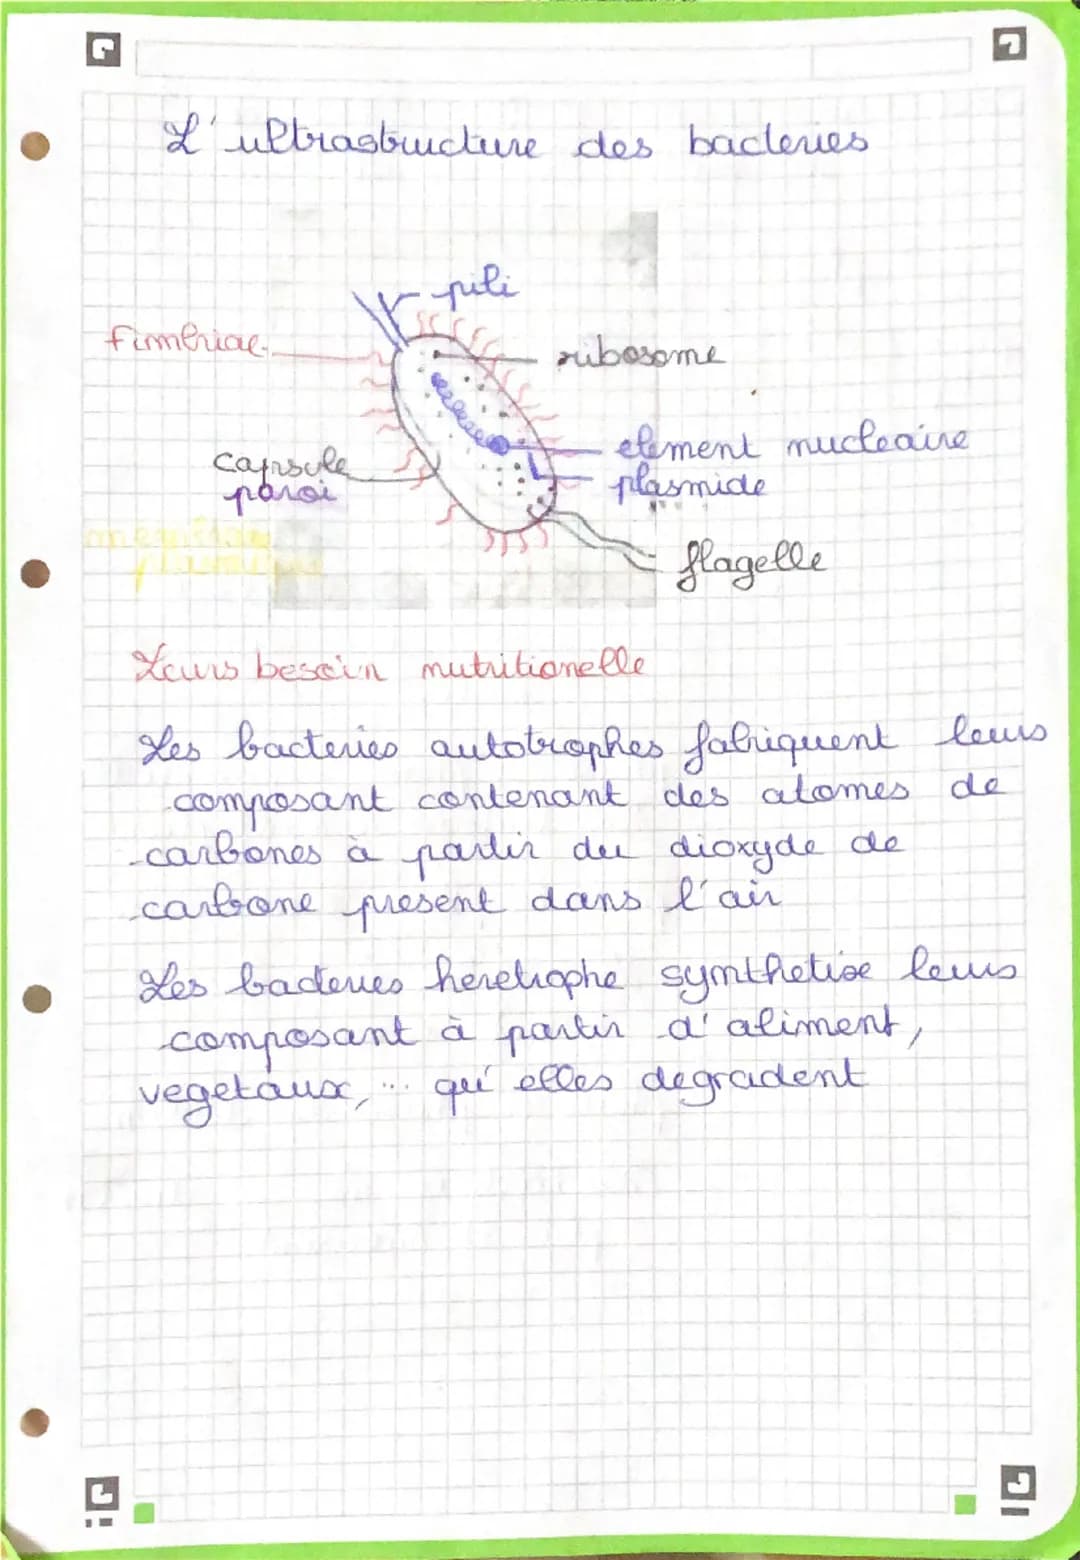 L'ultrastructure des bacteries
pili
fimbriae
ribosome
element nucleaire
capsule
plasmide
paroi
flagelle
Leurs besoin nutritionelle
Les bacteries autotrophes fabriquent leurs
composant contenant des atomes de
carbones à partir du dioxyde de
carbone present dans l'air
Les bacteries heretrophe synthetise leurs
composant à partir d'aliment,
vegetaux, ... qu'elles degradent